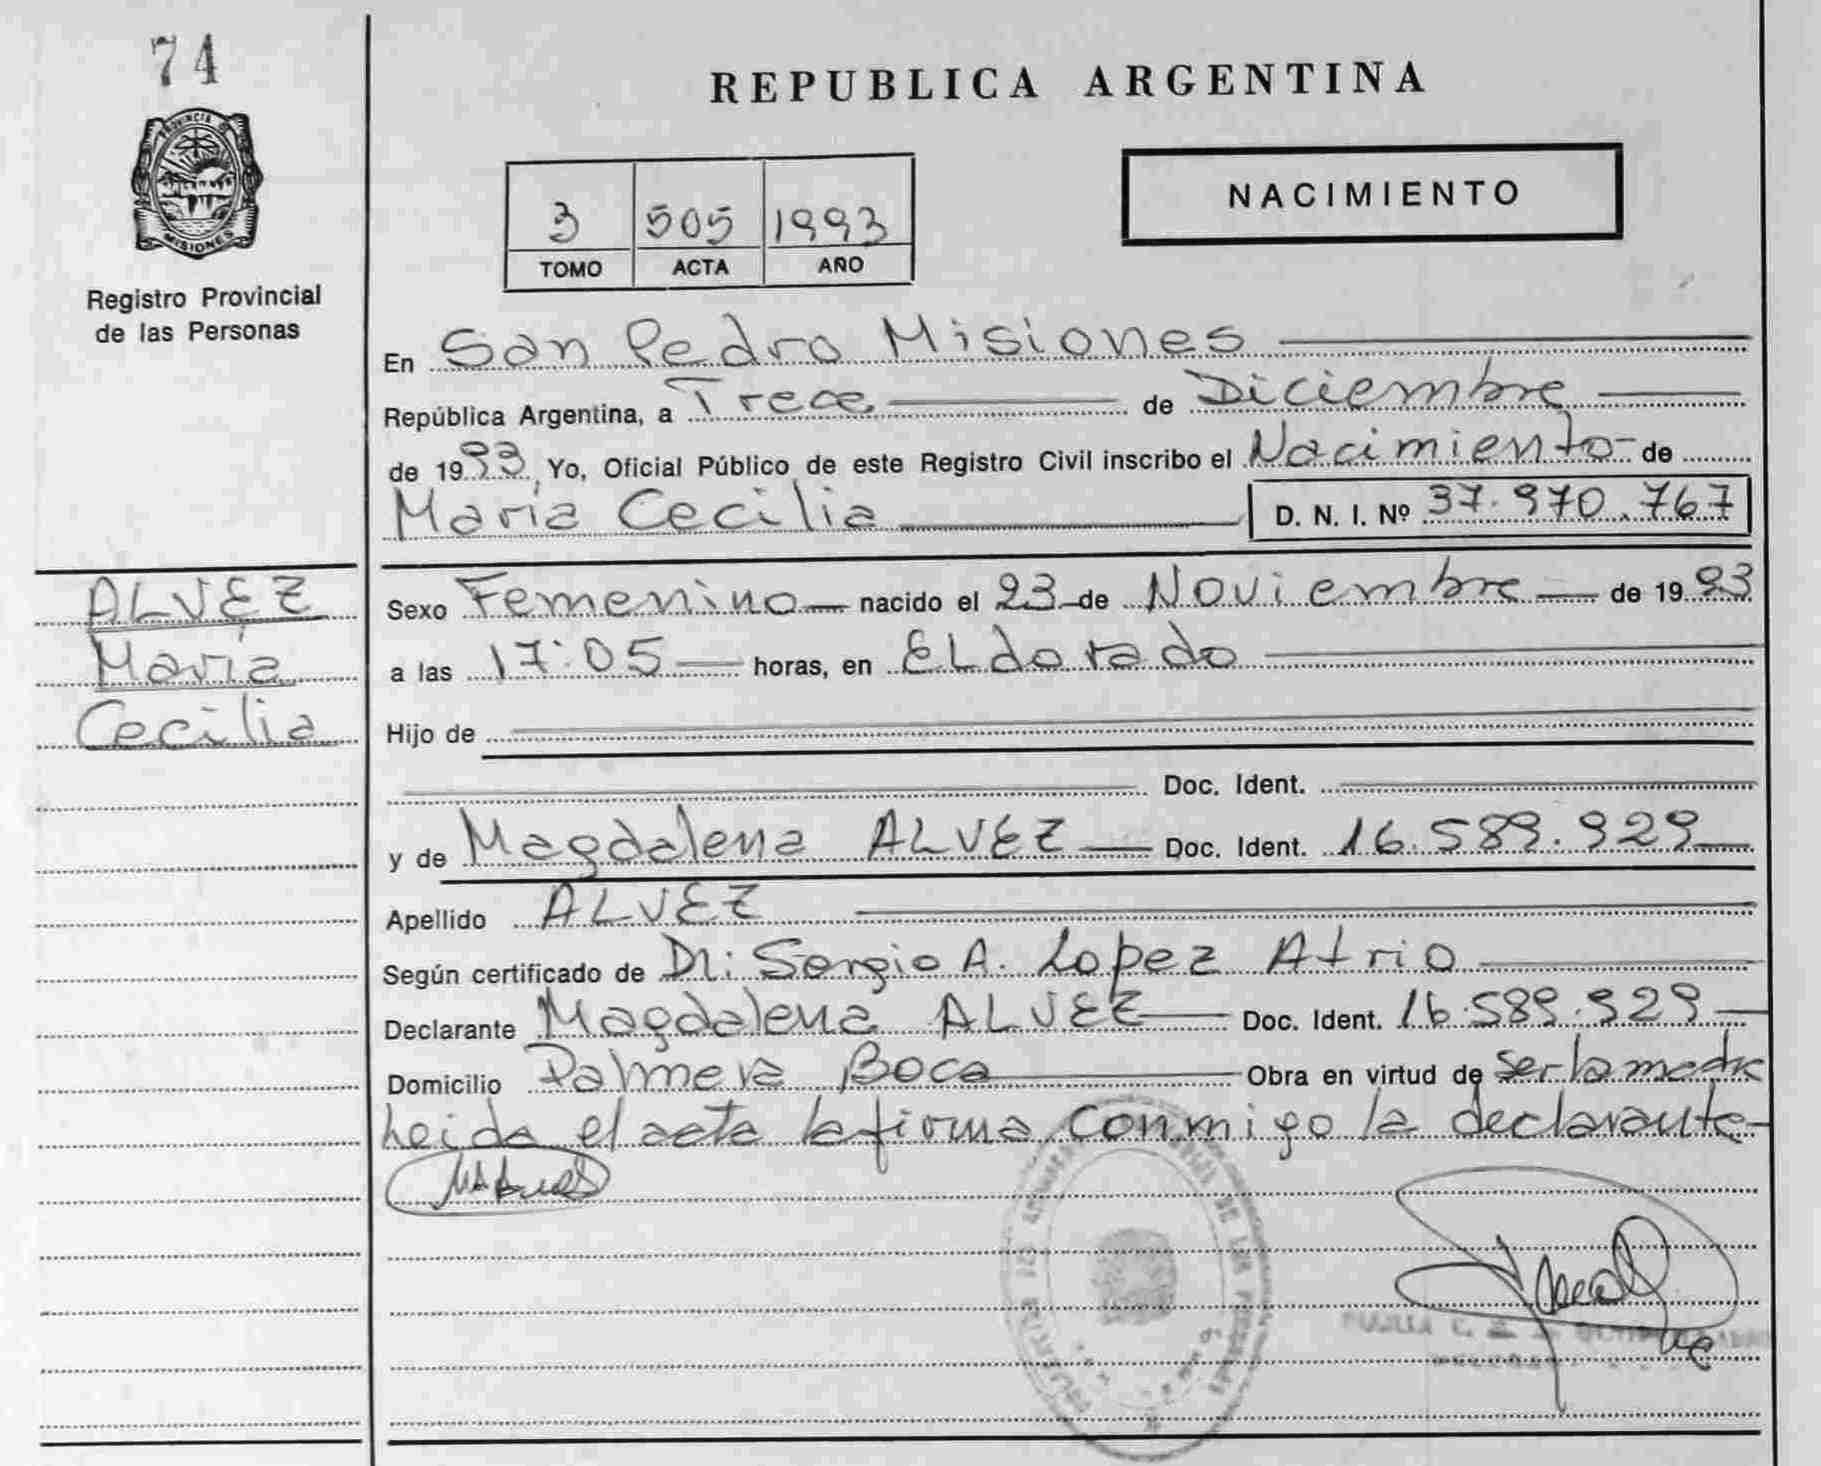 74
PROVINCIA DE
MISIONES
Registro Provincial
de las Personas
REPUBLICA ARGENTINA
3 505 1993
TOMO ACTA AÑO
NACIMIENTO
En San Pedro Misiones
República Argentina, a Trece de Diciembre
de 1993 Yo, Oficial Público de este Registro Civil inscribo el Nacimiento de
María Cecilia D. N. I. Nº 37.970.767
ALVEZ
María
Cecilia
Sexo Femenino nacido el 23 de Noviembre de 1993
a las 17:05 horas, en ELdorado
Hijo de
Doc. Ident.
y de Magdalena ALVEZ Doc. Ident. 16.589.929
Apellido ALVEZ
Según certificado de Dr: Sergio A. Lopez Atrio
Declarante Magdalena ALVEZ Doc. Ident. 16.589.929
Domicilio Palmera Boca Obra en virtud de ser la madre
Leida el acta la firma conmigo la declarante